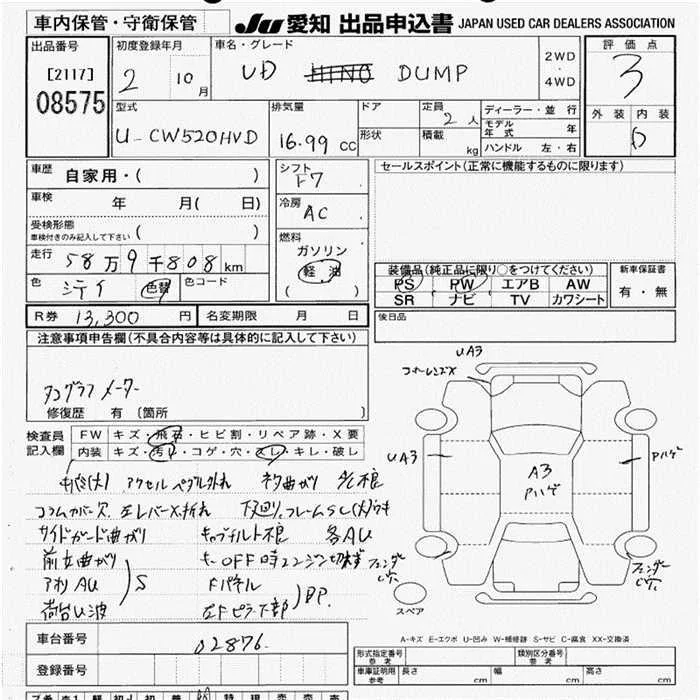 車内保管・守衛保管
JU 愛知 出品申込書 JAPAN USED CAR DEALERS ASSOCIATION
出品番号 初度登録年月 車名・グレード 評価点
[2117]
08575
2 10月
UD DUMP
2WD
・
4WD
3
外装 内装
D
型式 排気量 ドア 定員 ディーラー・並行
U-CW520HVD 16.99 cc
2人
モデル年式 年
形状 積載 kg ハンドル 左・右
車歴 自家用・( )
シフト F7
セールスポイント(正常に機能するものに限ります)
車検 年 月( 日)
冷房 AC
受検形態
車検付きのみ記入して下さい ( )
燃料 ガソリン
軽油
( )
走行 58万9千808km
色 シテイ 色替 色コード
装備品(純正品に限り○をつけてください) 新車保証書
PS PW エアB AW
SR ナビ TV カワシート
有・無
R券 13,300円 名変期限 月 日
後日品
注意事項申告欄(不具合内容等は具体的に記入して下さい)
タコグラフ メーター
修復歴 有 〔箇所 〕
検査員記入欄
FW キズ・飛石・ヒビ割・リペア跡・X要
内装 キズ・汚れ・コゲ・穴・スレ・キレ・破レ
アクセルペダル外れ
サイドガード曲がり
キャブチルト不良 各AU
前立曲がり
アオリAU
荷台U波
S
Fパネル
左Fピラー下部
BP
UA3
コーナーレンズX
UA3
A3
Aハゲ
Aハゲ
フェンダーC穴
フェンダーC穴
スペア
A-キズ E-エクボ U-凹み W-補修跡 S-サビ C-腐食 XX-交換済
車台番号 02876
登録番号
形式指定番号 参考 類別区分番号 参考
車庫証明用 参考 長さ cm 幅 cm 高さ cm